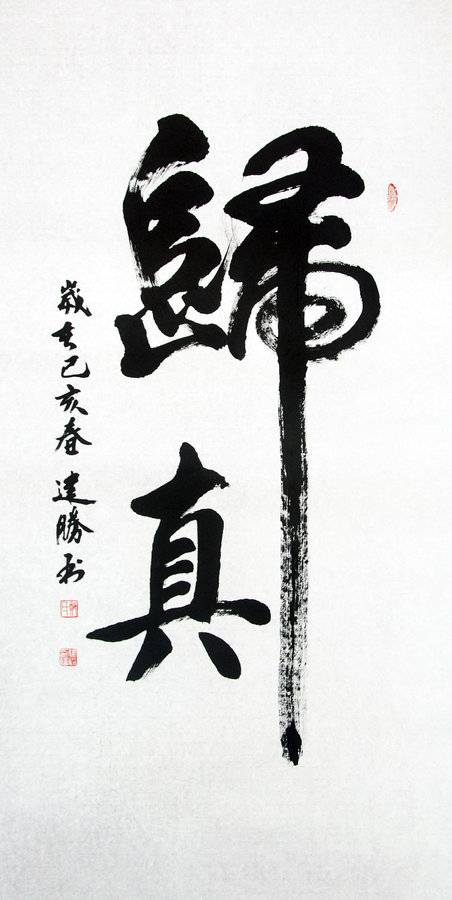 歸真
歲在己亥春 建勝書